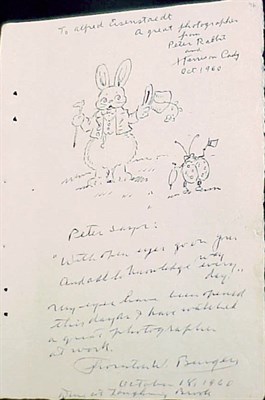 To Alfred Eisenstaedt
A great photographer
from
Peter Rabbit
and
Harrison Cady
Oct 1960
Peter says:
"With open eyes go on your
way
And add to knowledge every
day."
My eyes have been opened
this day as I have watched
a great photographer
at work.
Thornton W. Burgess
October 18, 1960
at Laughing Brook